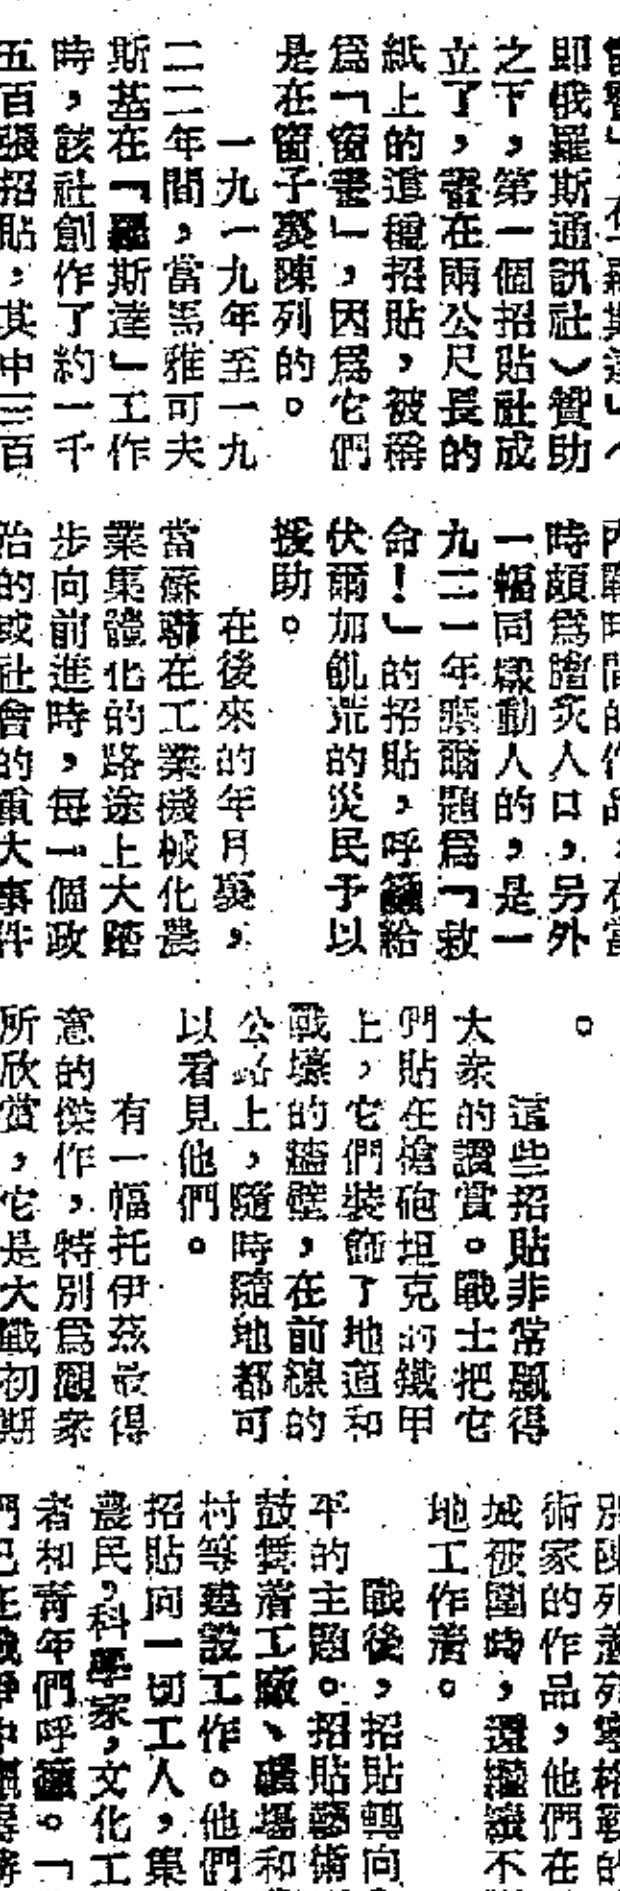 即俄羅斯通訊社）贊助
之下，第一個招貼社成
立了，畫在兩公尺長的
紙上的這種招貼，被稱
爲「窗畫」，因爲它們
是在窗子裏陳列的。
一九一九年至一九
二二年間，當馬雅可夫
斯基在「羅斯達」工作
時，該社創作了約一千
五百張招貼，其中三百
內戰時間的作品，在當
時頗爲膾炙人口，另外
一幅同樣動人的，是一
九二一年莫爾題爲「救
命！」的招貼，呼籲給
伏爾加飢荒的災民予以
援助。
在後來的年月裏，
當蘇聯在工業機械化農
業集體化的路途上大踏
步向前進時，每一個政
治的或社會的重大事件
。
這些招貼非常贏得
大衆的讚賞。戰士把它
們貼在槍砲坦克的鐵甲
上，它們裝飾了地道和
戰壕的牆壁，在前線的
公路上，隨時隨地都可
以看見他們。
有一幅托伊茲最得
意的傑作，特別爲觀衆
所欣賞，它是大戰初期
術家的作品，他們在
城被圍時，還繼續不
地工作着。
戰後，招貼轉向
平的主題。招貼藝術
鼓舞着工廠、礦場和
村等建設工作。他們
招貼向一切工人，集
農民，科學家，文化工
者和青年們呼籲。「